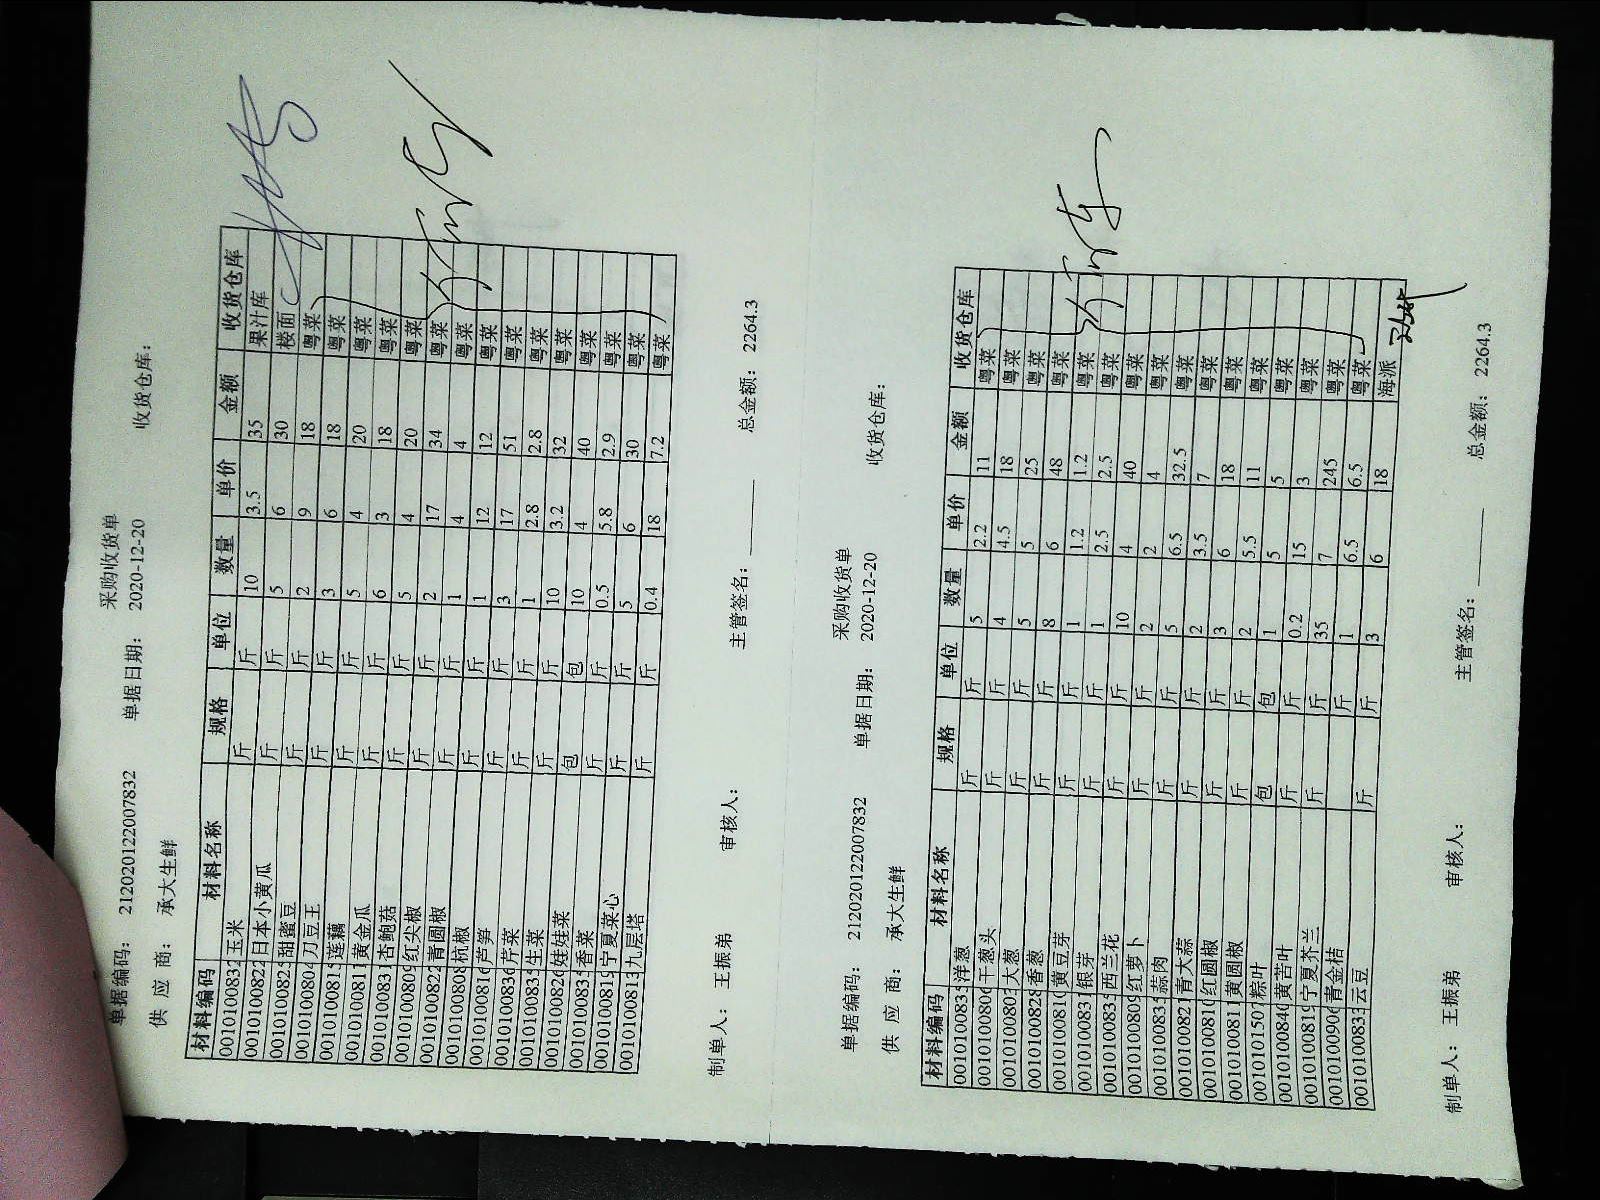 采购收货单
单据编码： 212020122007832 单据日期： 2020-12-20 收货仓库：
供 应 商： 承大生鲜
材料编码 材料名称 规格 单位 数量 单价 金额 收货仓库
0010100832 玉米 斤 斤 10 3.5 35 果汁库
0010100822 日本小黄瓜 斤 斤 5 6 30 楼面
0010100825 甜蜜豆 斤 斤 2 9 18 粤菜
0010100804 刀豆王 斤 斤 3 6 18 粤菜
0010100815 莲藕 斤 斤 5 4 20 粤菜
0010100811 黄金瓜 斤 斤 6 3 18 粤菜
0010100831 杏鲍菇 斤 斤 5 4 20 粤菜
0010100809 红尖椒 斤 斤 2 17 34 粤菜
0010100822 青圆椒 斤 斤 1 4 4 粤菜
0010100808 杭椒 斤 斤 1 12 12 粤菜
0010100816 芦笋 斤 斤 3 17 51 粤菜
0010100836 芹菜 斤 斤 1 2.8 2.8 粤菜
0010100835 生菜 斤 斤 10 3.2 32 粤菜
0010100826 娃娃菜 包 包 10 4 40 粤菜
0010100835 香菜 斤 斤 0.5 5.8 2.9 粤菜
0010100819 宁夏菜心 斤 斤 5 6 30 粤菜
0010100813 九层塔 斤 斤 0.4 18 7.2 粤菜
制单人： 王振弟 审核人： 主管签名： 总金额： 2264.3
采购收货单
单据编码： 212020122007832 单据日期： 2020-12-20 收货仓库：
供 应 商： 承大生鲜
材料编码 材料名称 规格 单位 数量 单价 金额 收货仓库
0010100833 洋葱 斤 斤 5 2.2 11 粤菜
0010100806 干葱头 斤 斤 4 4.5 18 粤菜
0010100803 大葱 斤 斤 5 5 25 粤菜
0010100828 香葱 斤 斤 8 6 48 粤菜
0010100810 黄豆芽 斤 斤 1 1.2 1.2 粤菜
0010100831 银芽 斤 斤 1 2.5 2.5 粤菜
0010100835 西兰花 斤 斤 10 4 40 粤菜
0010100809 红萝卜 斤 斤 2 2 4 粤菜
0010100835 蒜肉 斤 斤 5 6.5 32.5 粤菜
0010100821 青大蒜 斤 斤 2 3.5 7 粤菜
0010100810 红圆椒 斤 斤 3 6 18 粤菜
0010100811 黄圆椒 斤 斤 2 5.5 11 粤菜
0010101507 粽叶 包 包 1 5 5 粤菜
0010100840 黄苦叶 斤 斤 0.2 15 3 粤菜
0010100819 宁夏芥兰 斤 斤 35 7 245 粤菜
0010100906 青金桔 斤 1 6.5 6.5 粤菜
0010100833 云豆 斤 斤 3 6 18 海派
制单人： 王振弟 审核人： 主管签名： 总金额： 2264.3